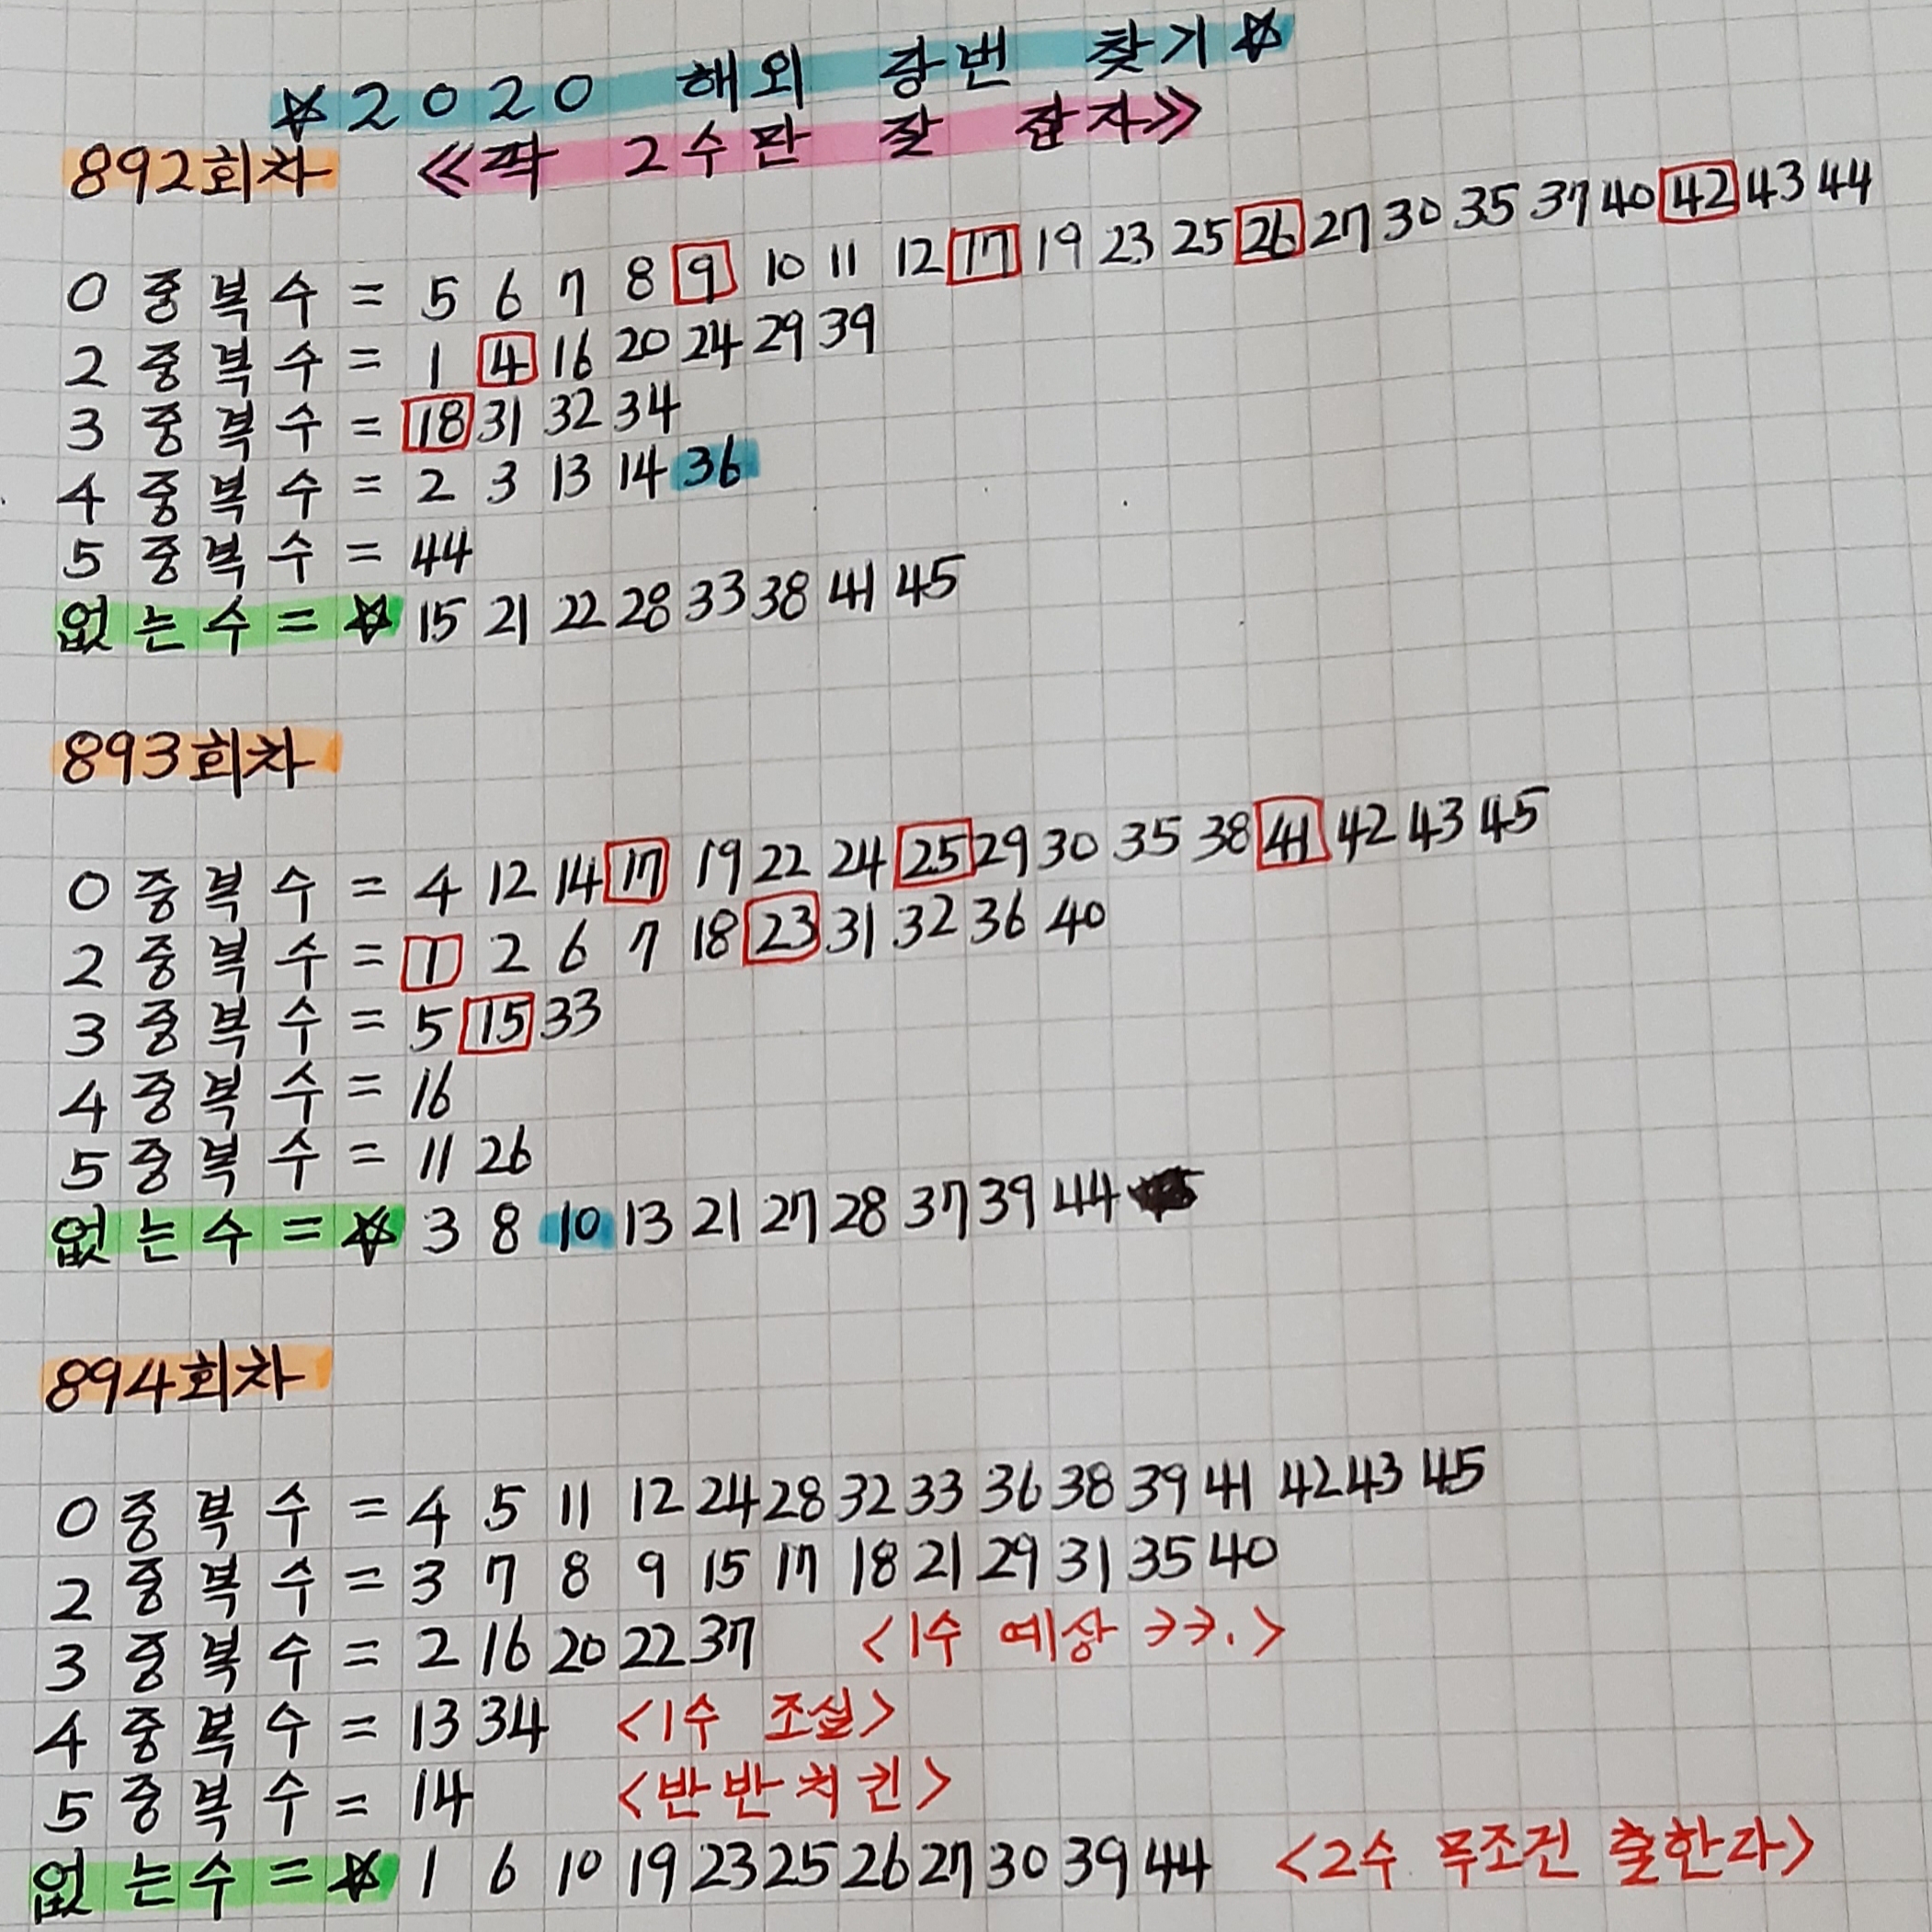 ☆2020 해외 강번 찾기☆
892회차 《짝 2수만 잘 잡자》
0 중복수 = 5 6 7 8 9 10 11 12 17 19 23 25 26 27 30 35 37 40 42 43 44
2 중복수 = 1 4 16 20 24 29 39
3 중복수 = 18 31 32 34
4 중복수 = 2 3 13 14 36
5 중복수 = 44
없는수 = ☆ 15 21 22 28 33 38 41 45
893회차
0 중복수 = 4 12 14 17 19 22 24 25 29 30 35 38 41 42 43 45
2 중복수 = 1 2 6 7 18 23 31 32 36 40
3 중복수 = 5 15 33
4 중복수 = 16
5 중복수 = 11 26
없는수 = ☆ 3 8 10 13 21 27 28 37 39 44
894회차
0 중복수 = 4 5 11 12 24 28 32 33 36 38 39 41 42 43 45
2 중복수 = 3 7 8 9 15 17 18 21 29 31 35 40
3 중복수 = 2 16 20 22 37 <1수 예상 >>.>
4 중복수 = 13 34 <1수 조심>
5 중복수 = 14 <반반치킨>
없는수 = ☆ 1 6 10 19 23 25 26 27 30 39 44 <2수 무조건 출한다>